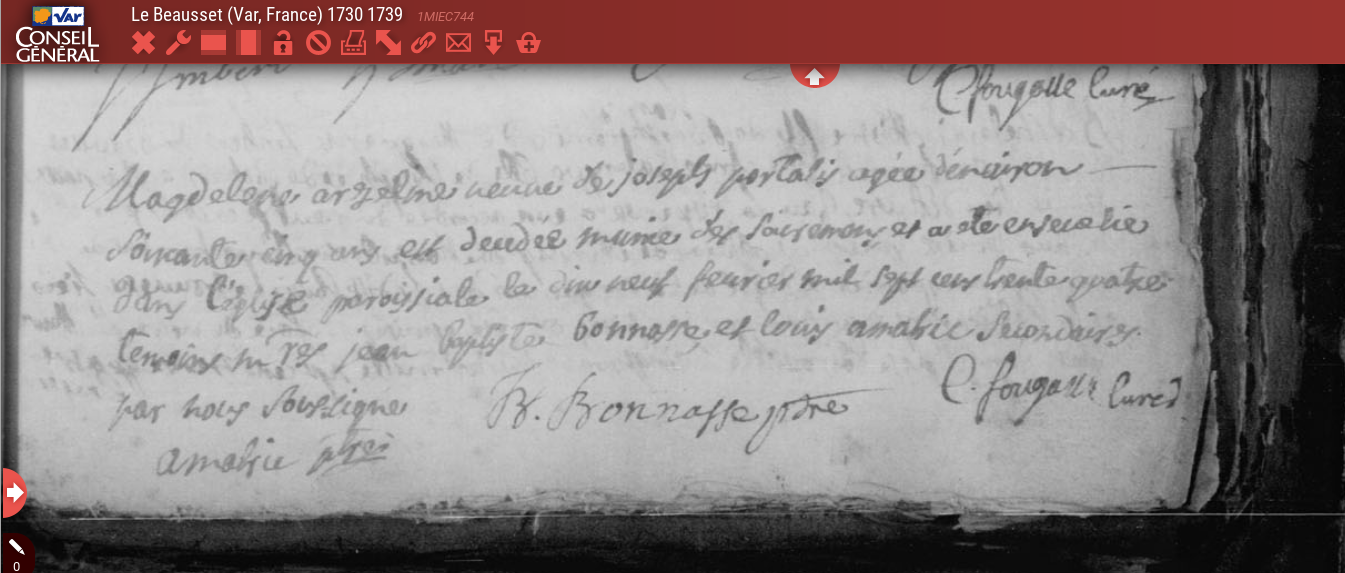 VAR
CONSEIL
GÉNÉRAL
Le Beausset (Var, France) 1730 1739 1MIEC744
C fougasse Curé
Magdelene anzelme veuve de joseph portalis agée d'environ
soixante cinq ans est decedee munie des sacremens et a ete ensevelie
dans l'eglise paroissiale le dix neuf fevrier mil sept cens trente quatre
temoins m res jean baptiste bonnasse et louis amalric secondaires
par nous soussigne
B. Bonnasse ptre
C. fougasse Curé
amalric ptre
0